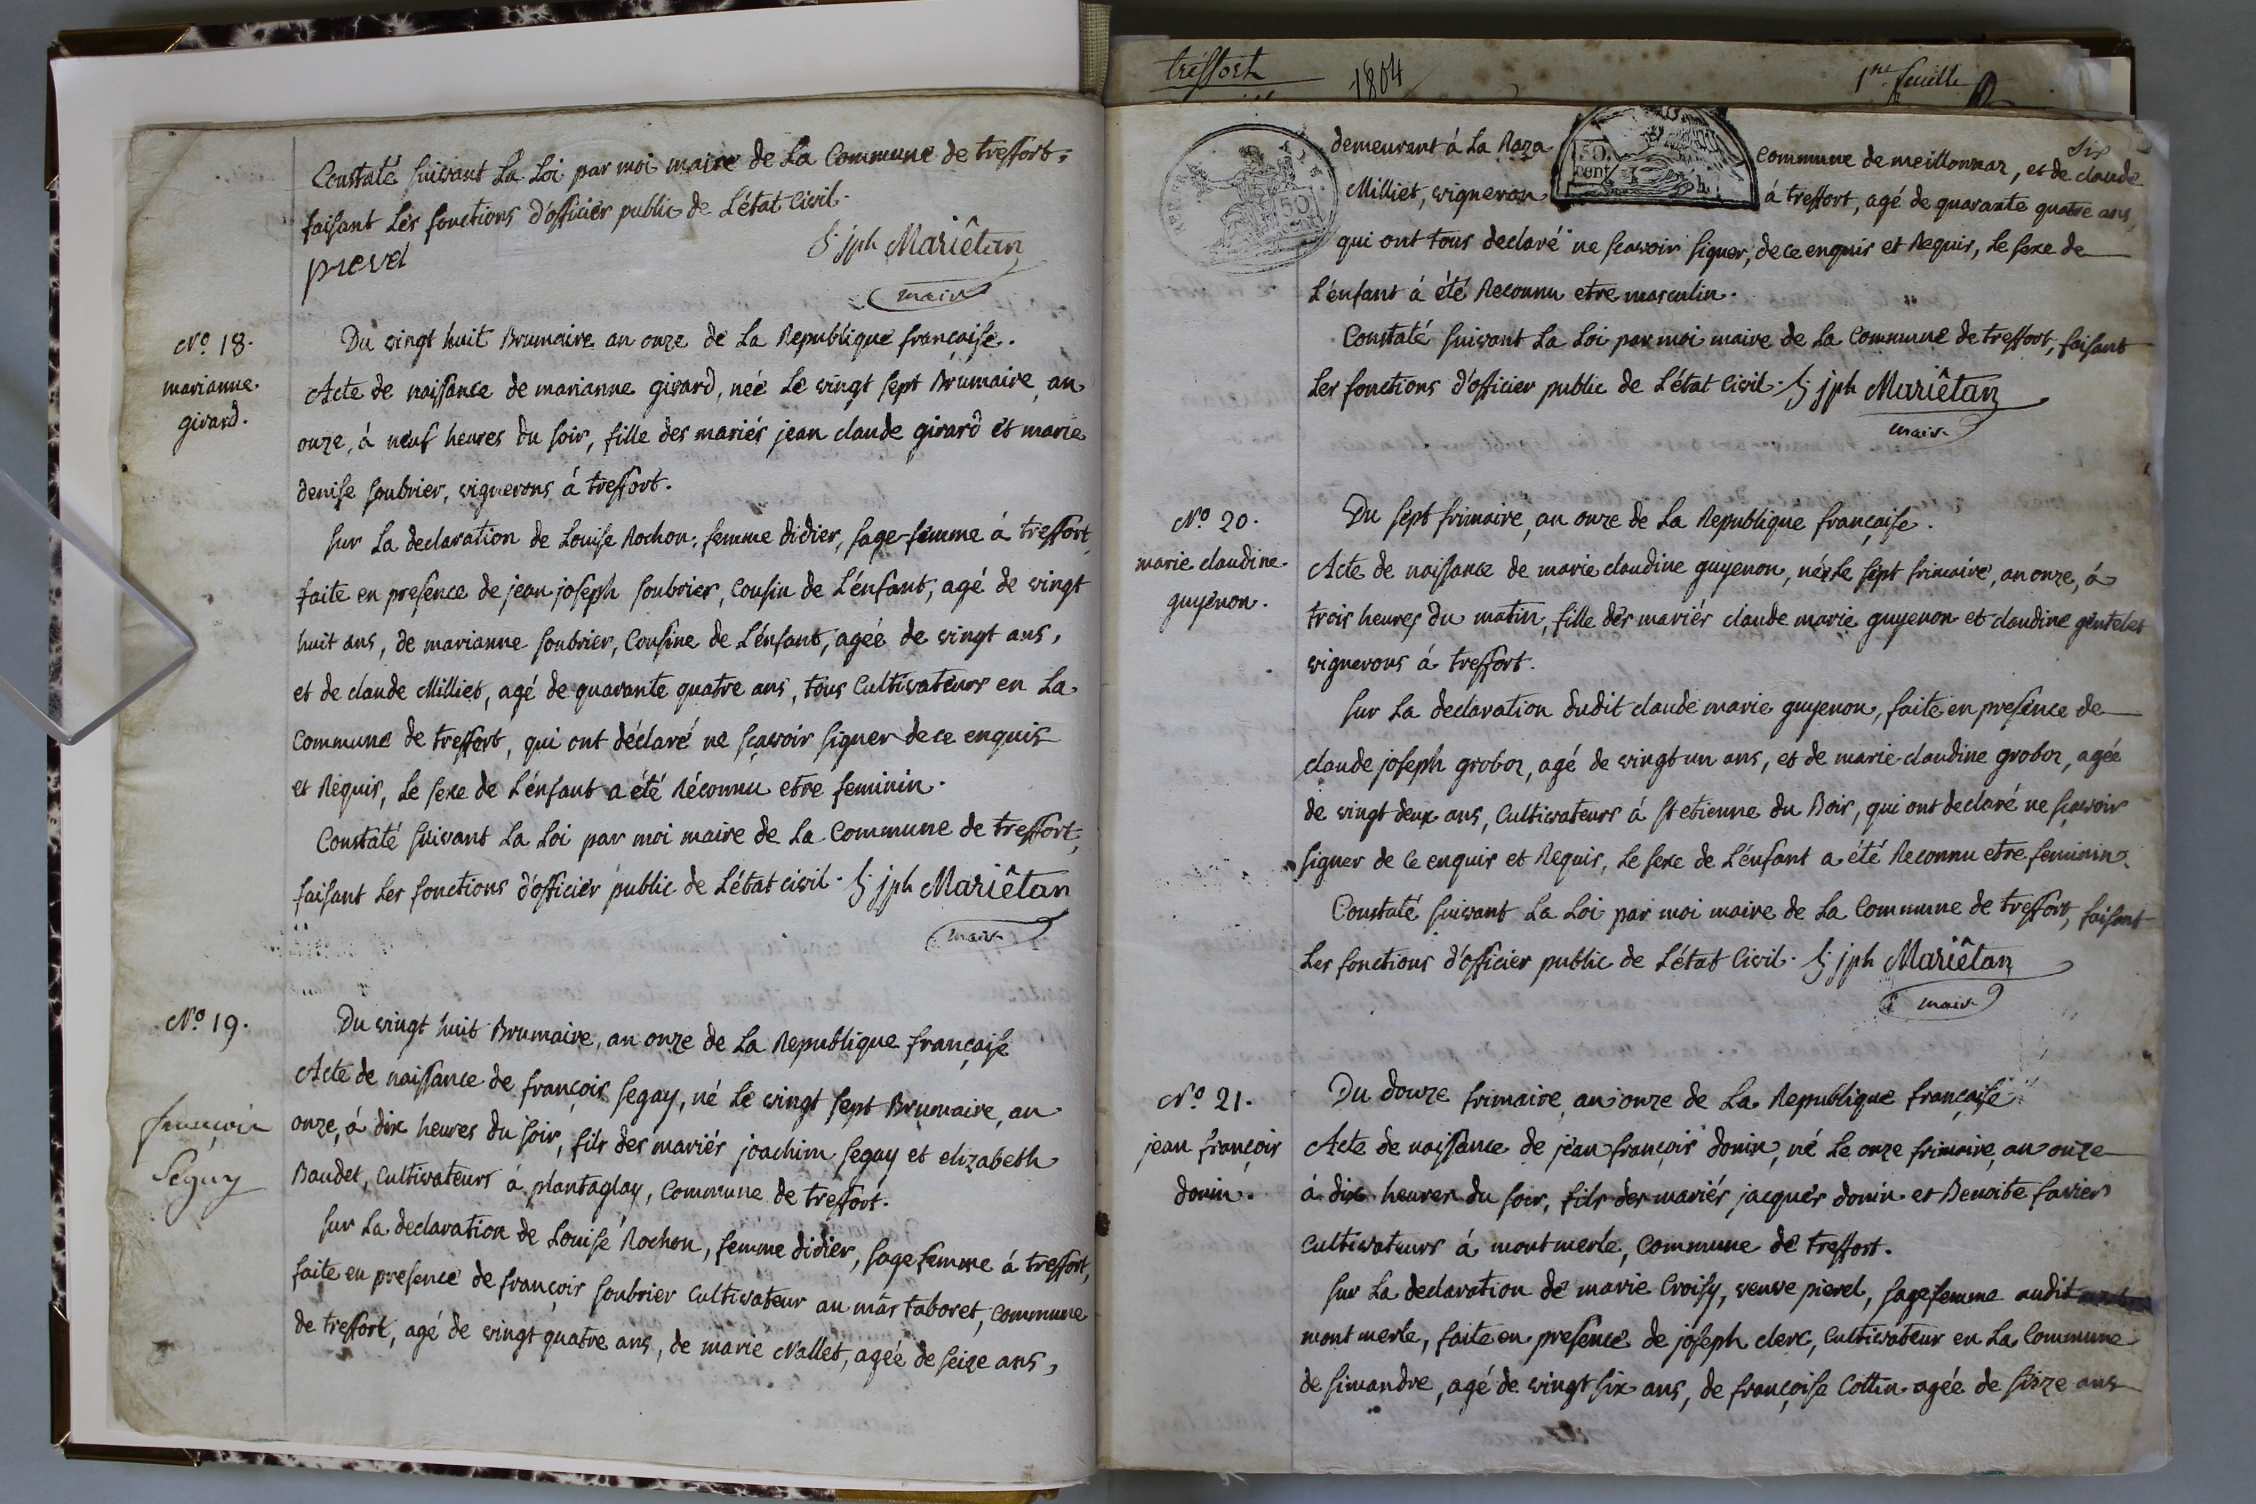 Constaté suivant La Loi par moi maire de La Commune de treffort,
faisant Les fonctions d'officier public de L'état Civil.
S. jph Mariêtan
prevel
maire
No. 18.
marianne
girard.
Du vingt huit Brumaire an onze de La Republique française.
Acte de naissance de marianne girard, née Le vingt sept Brumaire, an
onze, á neuf heures du soir, fille des mariés jean claude girard et marie
denise soubrier, vignerons á treffort.
sur La declaration de Louise Rochon, femme didier, sage-femme á treffort,
faite en presence de jean joseph soubrier, Cousin de L'énfant, agé de vingt
huit ans, de marianne soubrier, Cousine de L'énfant, ageé de vingt ans,
et de claude Milliet, agé de quarante quatre ans, tous Cultivateurs en La
Commune de treffort, qui ont déclaré ne sçavoir signer de ce enquis
et Réquis, Le sexe de L'énfant a été Réconnu etre feminin.
Constaté suivant La Loi par moi maire de La Commune de treffort,
faisant Les fonctions d'officier public de L'état civil. S. jph Mariêtan
maire
No. 19.
françois
Séguy
Du vingt huit Brumaire, an onze de La Republique française
Acte de naissance de françois segay, né Le vingt sept Brumaire, an
onze, á dix heures du soir, fils des mariés joachim segay et elizabeth
Baudet, Cultivateurs á plantaglay, Commune de treffort.
sur La declaration de Louise Rochon, femme didier, sage femme á treffort,
faite en presence de françois soubrier Cultivateur au mas taboret, Commune
de treffort, agé de vingt quatre ans, de marie Nallet, ageé de seize ans,
treffort
1804
1re feuille
six
50
cent
50
demeurant á La Raza Commune de meillonnaz, et de claude
Milliet, vigneron á treffort, agé de quarante quatre ans,
qui ont tous declaré ne sçavoir signer, de ce enquis et Requis, Le sexe de
L'énfant á été Reconnu etre masculin.
Constaté suivant La Loi par moi maire de La Commune de treffort, faisant
Les fonctions d'officier public de L'état Civil. S. jph Mariêtan
maire
No. 20.
marie claudine
guyenon.
Du sept frimaire, an onze de La Republique française.
Acte de naissance de marie claudine guyenon, née Le sépt frimaire, an onze, á
trois heures du matin, fille des mariés claude marie guyenon et claudine gentelet
vignerons á treffort.
sur La declaration dudit claude marie guyenon, faite en presence de
claude joseph groboz, agé de vingt un ans, et de marie claudine groboz, agée
de vingt deux ans, Cultivateurs á st etienne du Bois, qui ont declaré ne sçavoir
signer de Ce enquis et Requis, Le sexe de L'énfant a été Reconnu etre feminin.
Constaté suivant La Loi par moi maire de La Commune de treffort, faisant
Les fonctions d'officier public de L'état Civil. S. jph Mariêtan
maire
No. 21.
jean françois
donin.
Du douze frimaire, an onze de La Republique française
Acte de naissance de jean françois donin, né Le onze frimaire, an onze
á dix heures du soir, fils des mariés jacques donin et Benoite favier
Cultivateurs á mont merle, Commune de treffort.
sur La declaration de marie Croisy, veuve pierel, sagefemme audit
mont merle, faite en presence de joseph clerc, Cultivateur en La Commune
de simandre, agé de vingt six ans, de françoise Cottin agée de seize ans